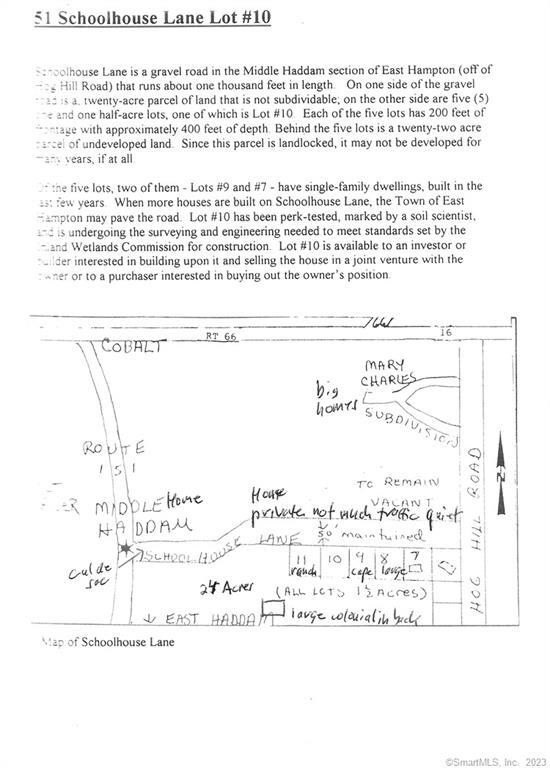 51 Schoolhouse Lane Lot #10
Schoolhouse Lane is a gravel road in the Middle Haddam section of East Hampton (off of
Hog Hill Road) that runs about one thousand feet in length. On one side of the gravel
road is a, twenty-acre parcel of land that is not subdividable, on the other side are five (5)
one and one half-acre lots, one of which is Lot #10. Each of the five lots has 200 feet of
frontage with approximately 400 feet of depth. Behind the five lots is a twenty-two acre
parcel of undeveloped land. Since this parcel is landlocked, it may not be developed for
many years, if at all.
Of the five lots, two of them - Lots #9 and #7 - have single-family dwellings, built in the
last few years. When more houses are built on Schoolhouse Lane, the Town of East
Hampton may pave the road. Lot #10 has been perk-tested, marked by a soil scientist,
and is undergoing the surveying and engineering needed to meet standards set by the
Inland Wetlands Commission for construction. Lot #10 is available to an investor or
builder interested in building upon it and selling the house in a joint venture with the
owner or to a purchaser interested in buying out the owner's position.
RT 66
16
COBALT
MARY
CHARLES
SUBDIVISION
big
homes
ROUTE
151
TO REMAIN
VACANT
HOG HILL ROAD
N
MIDDLE
HADDAM
Home
House
private not much traffic quiet
SCHOOLHOUSE LANE
50' maintained
cul de
sac
11 10 9 8 7
ranch cape large
24 Acres
(ALL LOTS 1½ ACRES)
↓ EAST HADDAM
large colonial in back
Map of Schoolhouse Lane
©SmartMLS, Inc. 2023